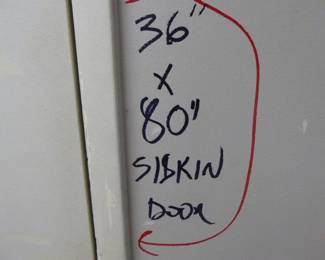 36"
x
80"
SISKIN
DOOR